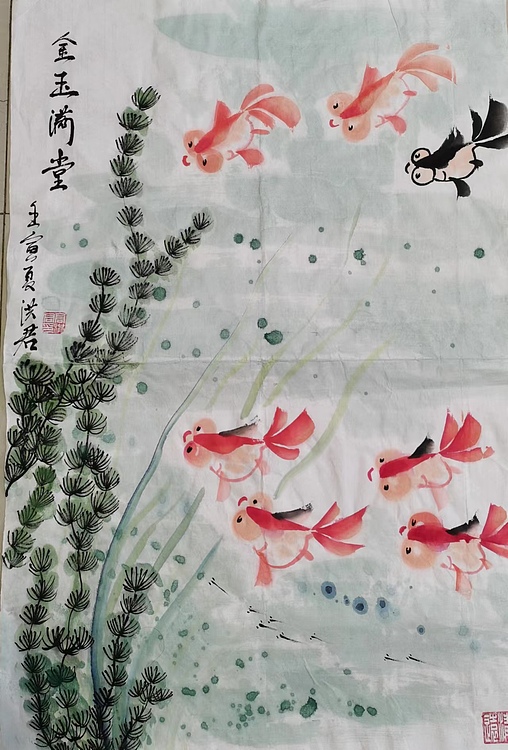 金玉满堂
壬寅夏洪君